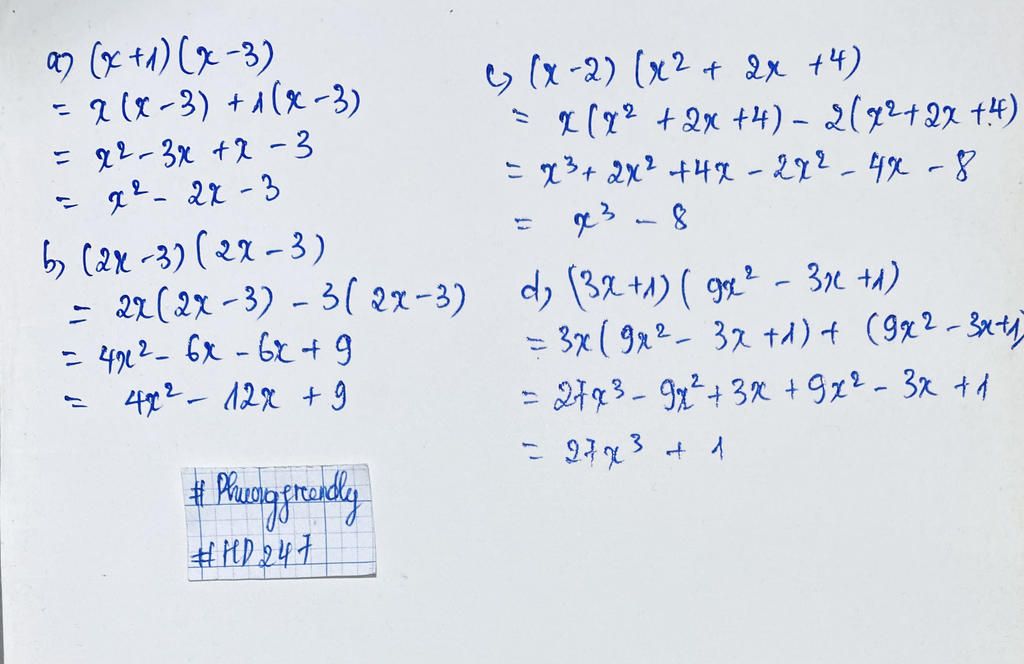 a) (x+1)(x-3)
= x(x-3) +1(x-3)
= x² - 3x + x - 3
= x² - 2x - 3
b) (2x-3)(2x-3)
= 2x(2x-3) - 3(2x-3)
= 4x² - 6x - 6x + 9
= 4x² - 12x + 9
c) (x-2)(x² + 2x + 4)
= x(x² + 2x + 4) - 2(x² + 2x + 4)
= x³ + 2x² + 4x - 2x² - 4x - 8
= x³ - 8
d) (3x+1)(9x² - 3x + 1)
= 3x(9x² - 3x + 1) + (9x² - 3x+1)
= 27x³ - 9x² + 3x + 9x² - 3x + 1
= 27x³ + 1
#HD247